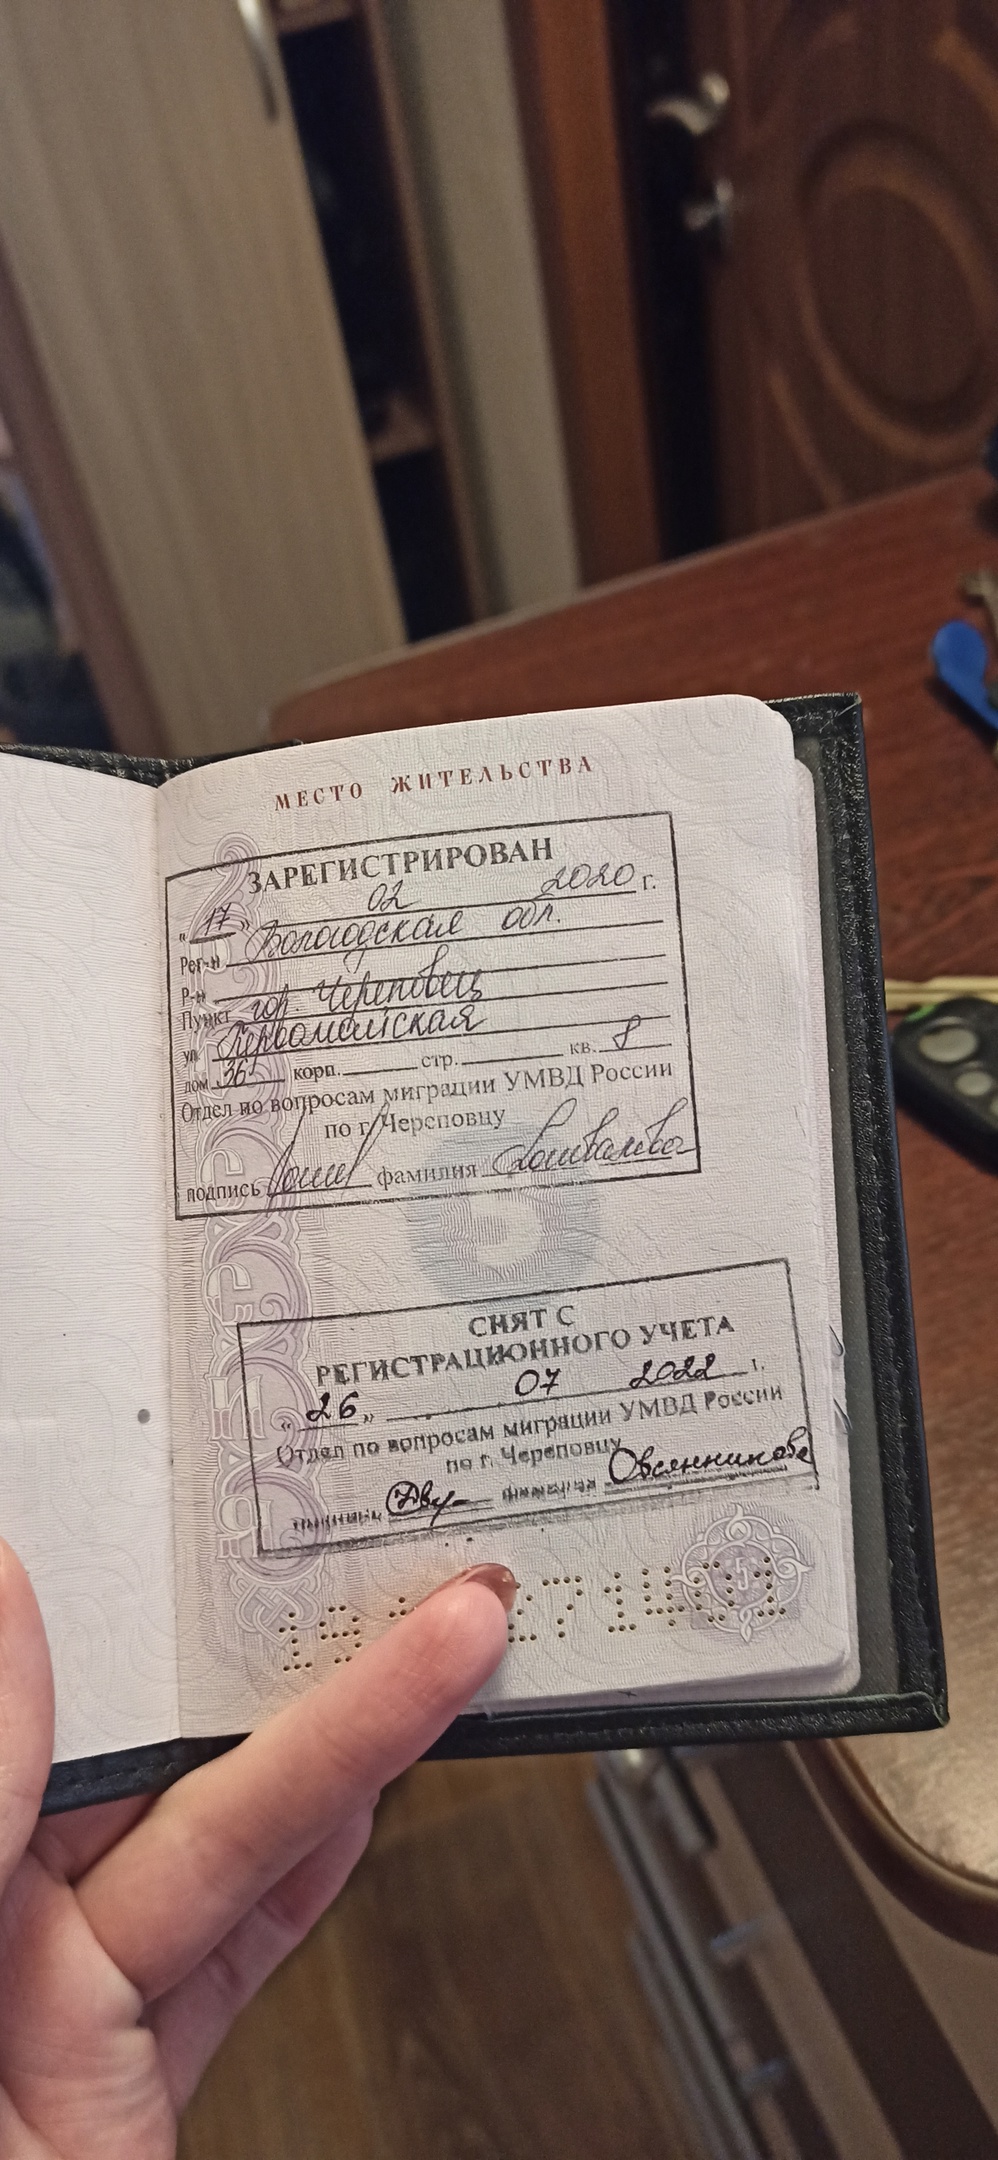 МЕСТО ЖИТЕЛЬСТВА
ЗАРЕГИСТРИРОВАН
„ 17 " 02 2020 г.
Рег-н Вологодская обл.
Р-н
Пункт гор. Череповец
ул. Первомайская
дом 36 корп. стр. кв. 8
Отдел по вопросам миграции УМВД России
по г. Череповцу
подпись фамилия
СНЯТ С
РЕГИСТРАЦИОННОГО УЧЕТА
„ 26 „ 07 2022 г.
Отдел по вопросам миграции УМВД России
по г. Череповцу
подпись фамилия Овсянникова
5